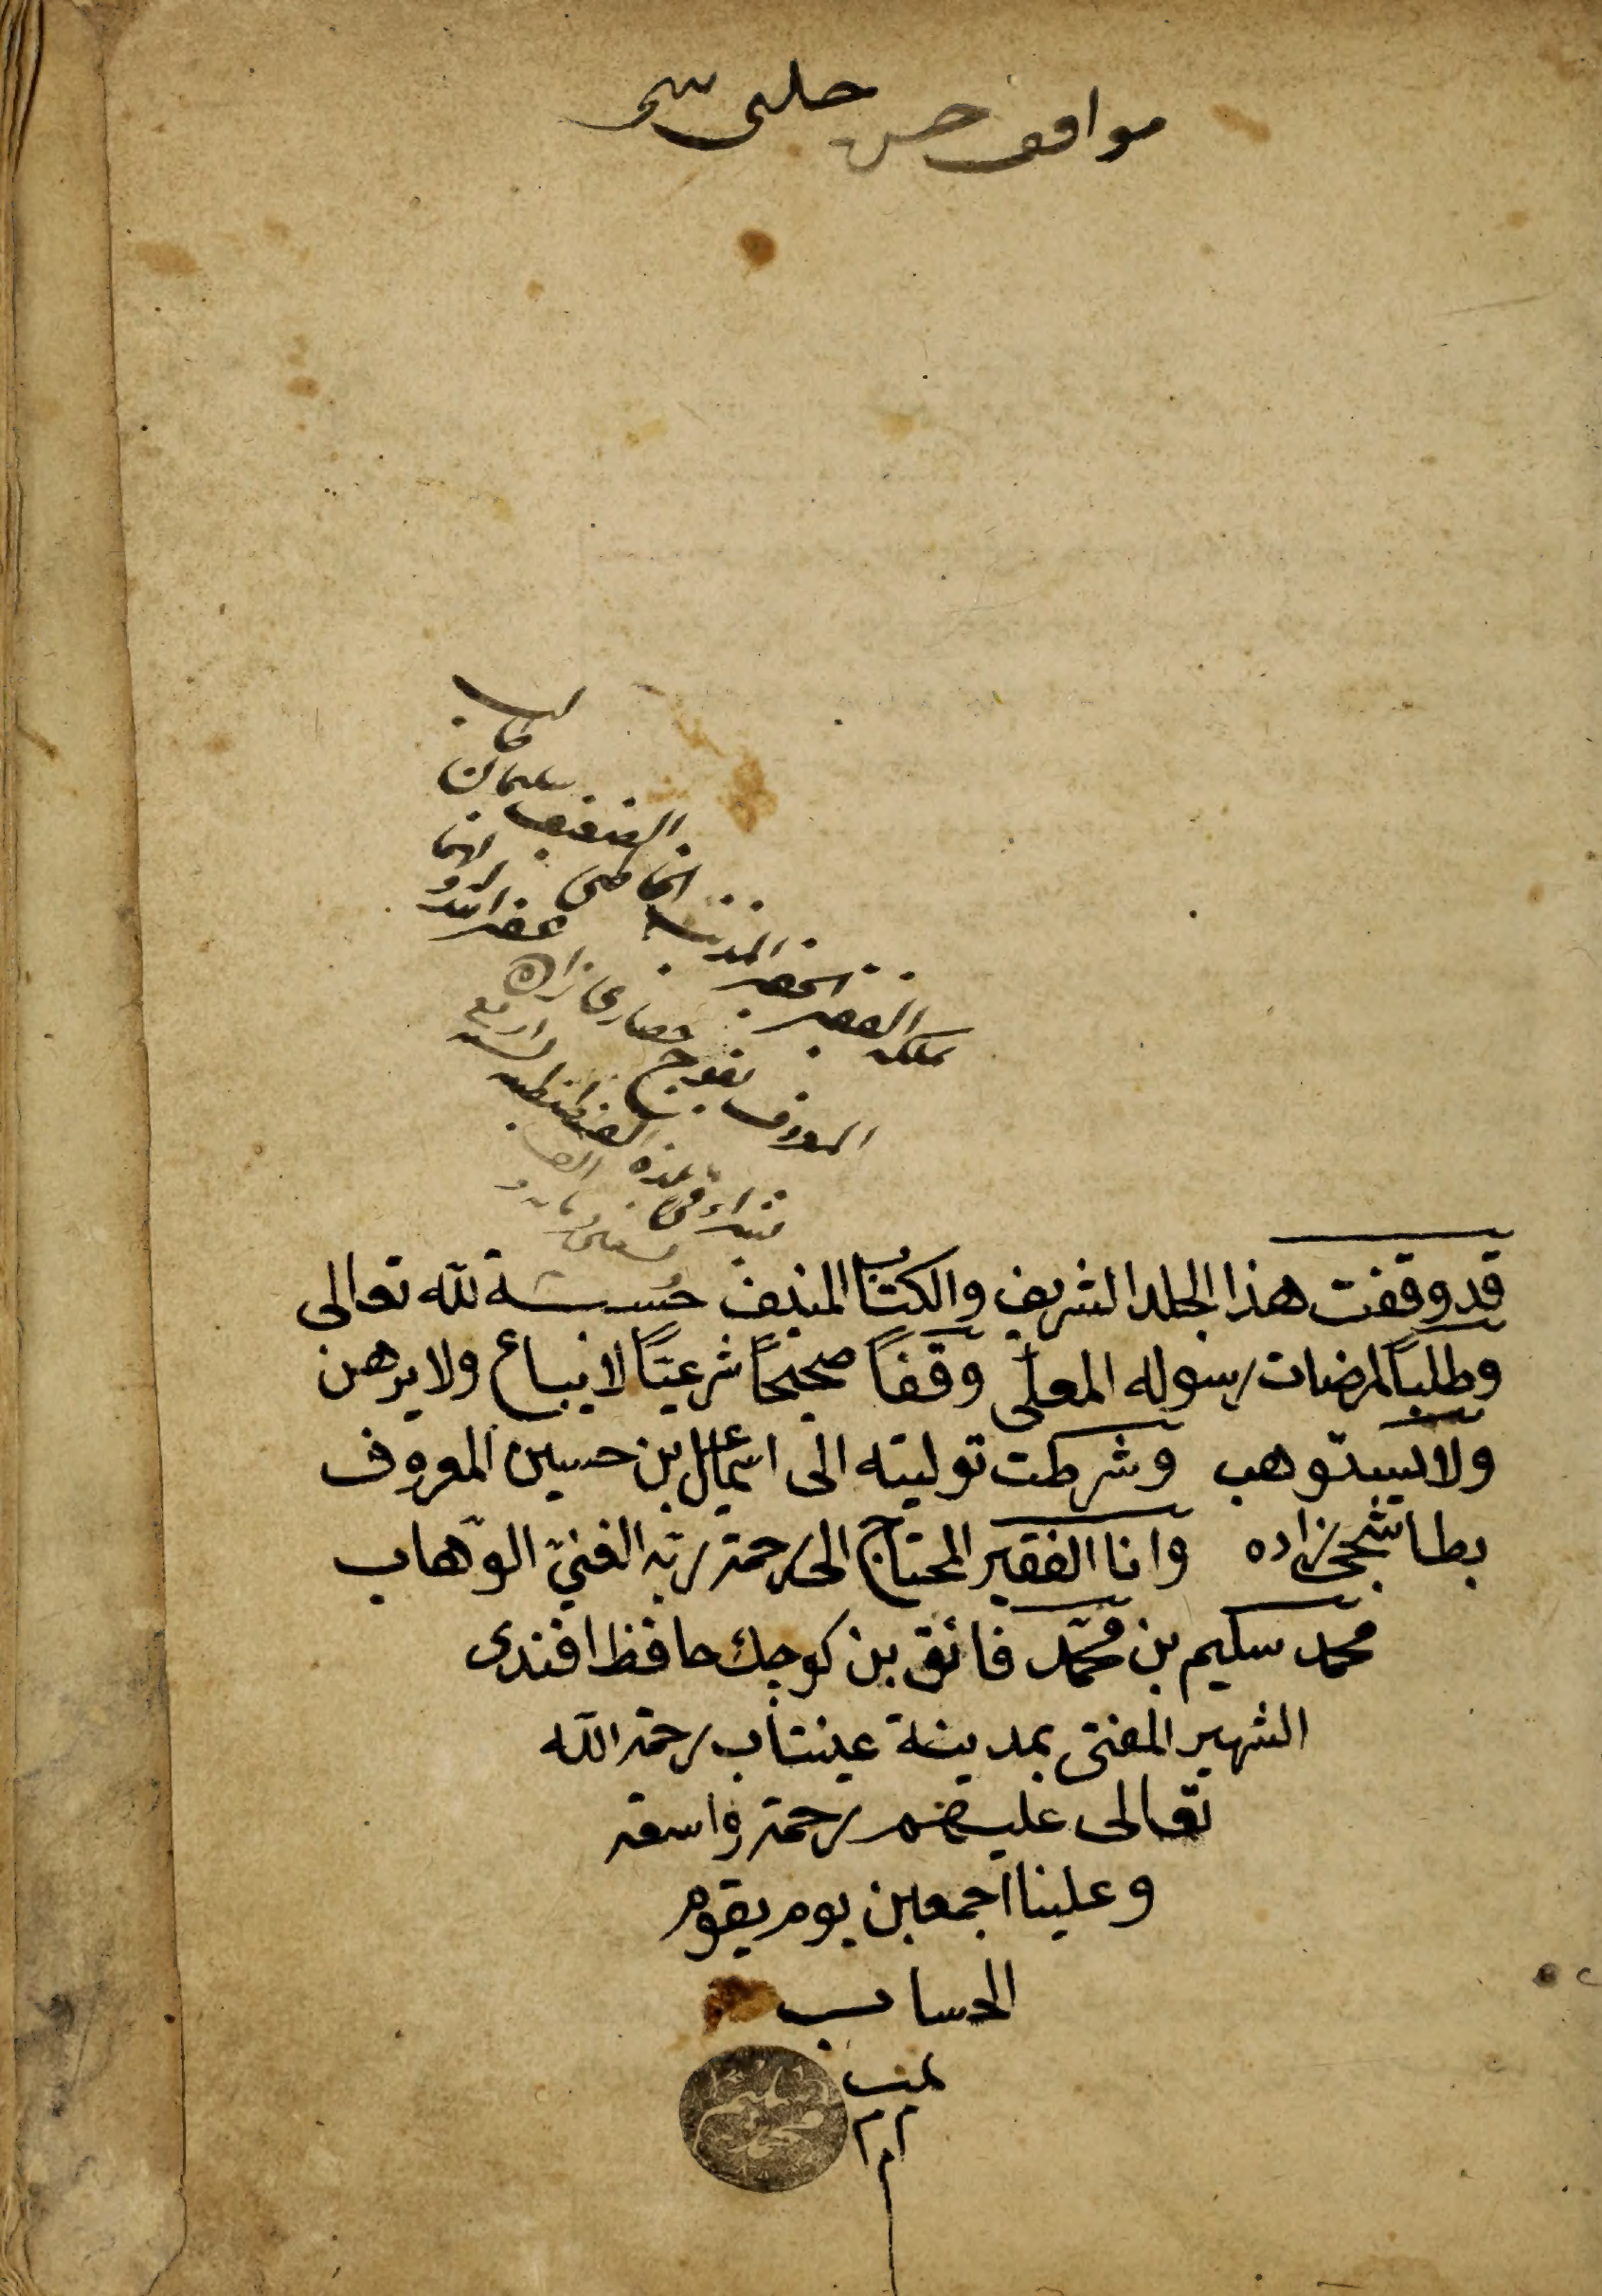 مواقف حسن جلبى
ملكه الفقير الحقير المذنب الخاطى الضعيف سليمان
المعروف بقوج حصارى زاده غفر الله
شراء فى بلدة القسطنطنيه
قد وقفت هذا الجلد الشريف والكتاب المنيف حسبة لله تعالى
وطلباً لمرضات رسوله المعلّى وقفاً صحيحاً شرعيّاً لا يباع ولا يرهن
ولا يستوهب وشرطت توليته الى اسمعيل بن حسين المعروف
بطاشجى زاده وانا الفقير المحتاج الى رحمة ربّه الغنىّ الوهّاب
محمد سليم بن محمّد فائق بن كوچك حافظ افندى
الشهير المفتى بمدينة عينتاب رحمة الله
تعالى عليهم رحمة واسعة
وعلينا اجمعين يوم يقوم
الحساب